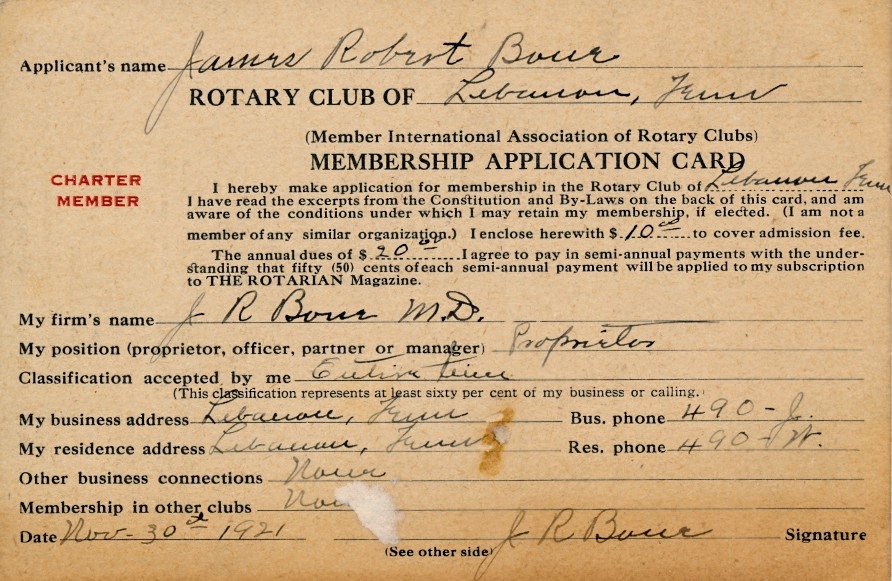 Applicant's name James Robert Bone
ROTARY CLUB OF Lebanon, Tenn
(Member International Association of Rotary Clubs)
MEMBERSHIP APPLICATION CARD
CHARTER
MEMBER
I hereby make application for membership in the Rotary Club of Lebanon Tenn
I have read the excerpts from the Constitution and By-Laws on the back of this card, and am
aware of the conditions under which I may retain my membership, if elected. (I am not a
member of any similar organization.) I enclose herewith $ 10 00 to cover admission fee.
The annual dues of $ 20 00 I agree to pay in semi-annual payments with the under-
standing that fifty (50) cents of each semi-annual payment will be applied to my subscription
to THE ROTARIAN Magazine.
My firm's name J R Bone M.D.
My position (proprietor, officer, partner or manager) Proprietor
Classification accepted by me Entire time
(This classification represents at least sixty per cent of my business or calling.
My business address Lebanon, Tenn Bus. phone 490-J.
My residence address Lebanon, Tenn Res. phone 490-W.
Other business connections None
Membership in other clubs
Date Nov-30th 1921 J R Bone Signature
(See other side)